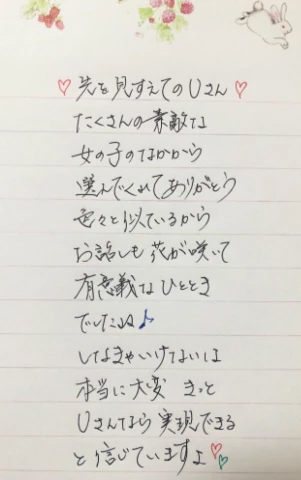 ♡先を見すえてのUさん♡
たくさんの素敵な
女の子のなかから
選んでくれてありがとう
色々と似ているから
お話しも花が咲いて
有意義なひととき
でしたね♪
しなきゃいけないは
本当に大変 きっと
Uさんなら実現できる
と信じていますよ♡♡